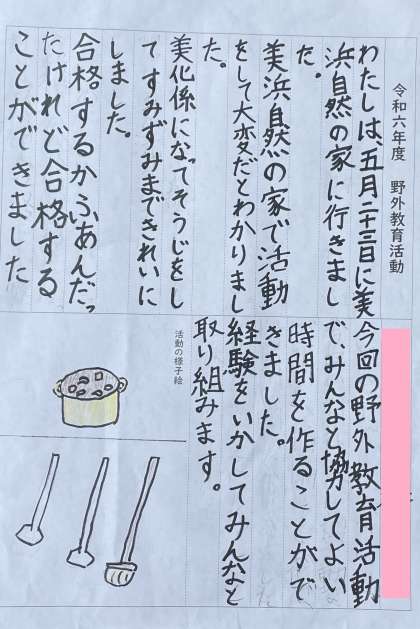 令和六年度 野外教育活動
わたしは、五月二十三日に美
浜自然の家に行きまし
た。
美浜自然の家で活動
をして大変だとわかりまし
た。
美化係になってそうじをし
てすみずみまできれいに
しました。
合格するかふあんだっ
たけれど合格する
ことができました
今回の野外教育活動
で、みんなと協力してよい
時間を作ることがで
きました。
経験をいかしてみんなと
取り組みます。
活動の様子絵